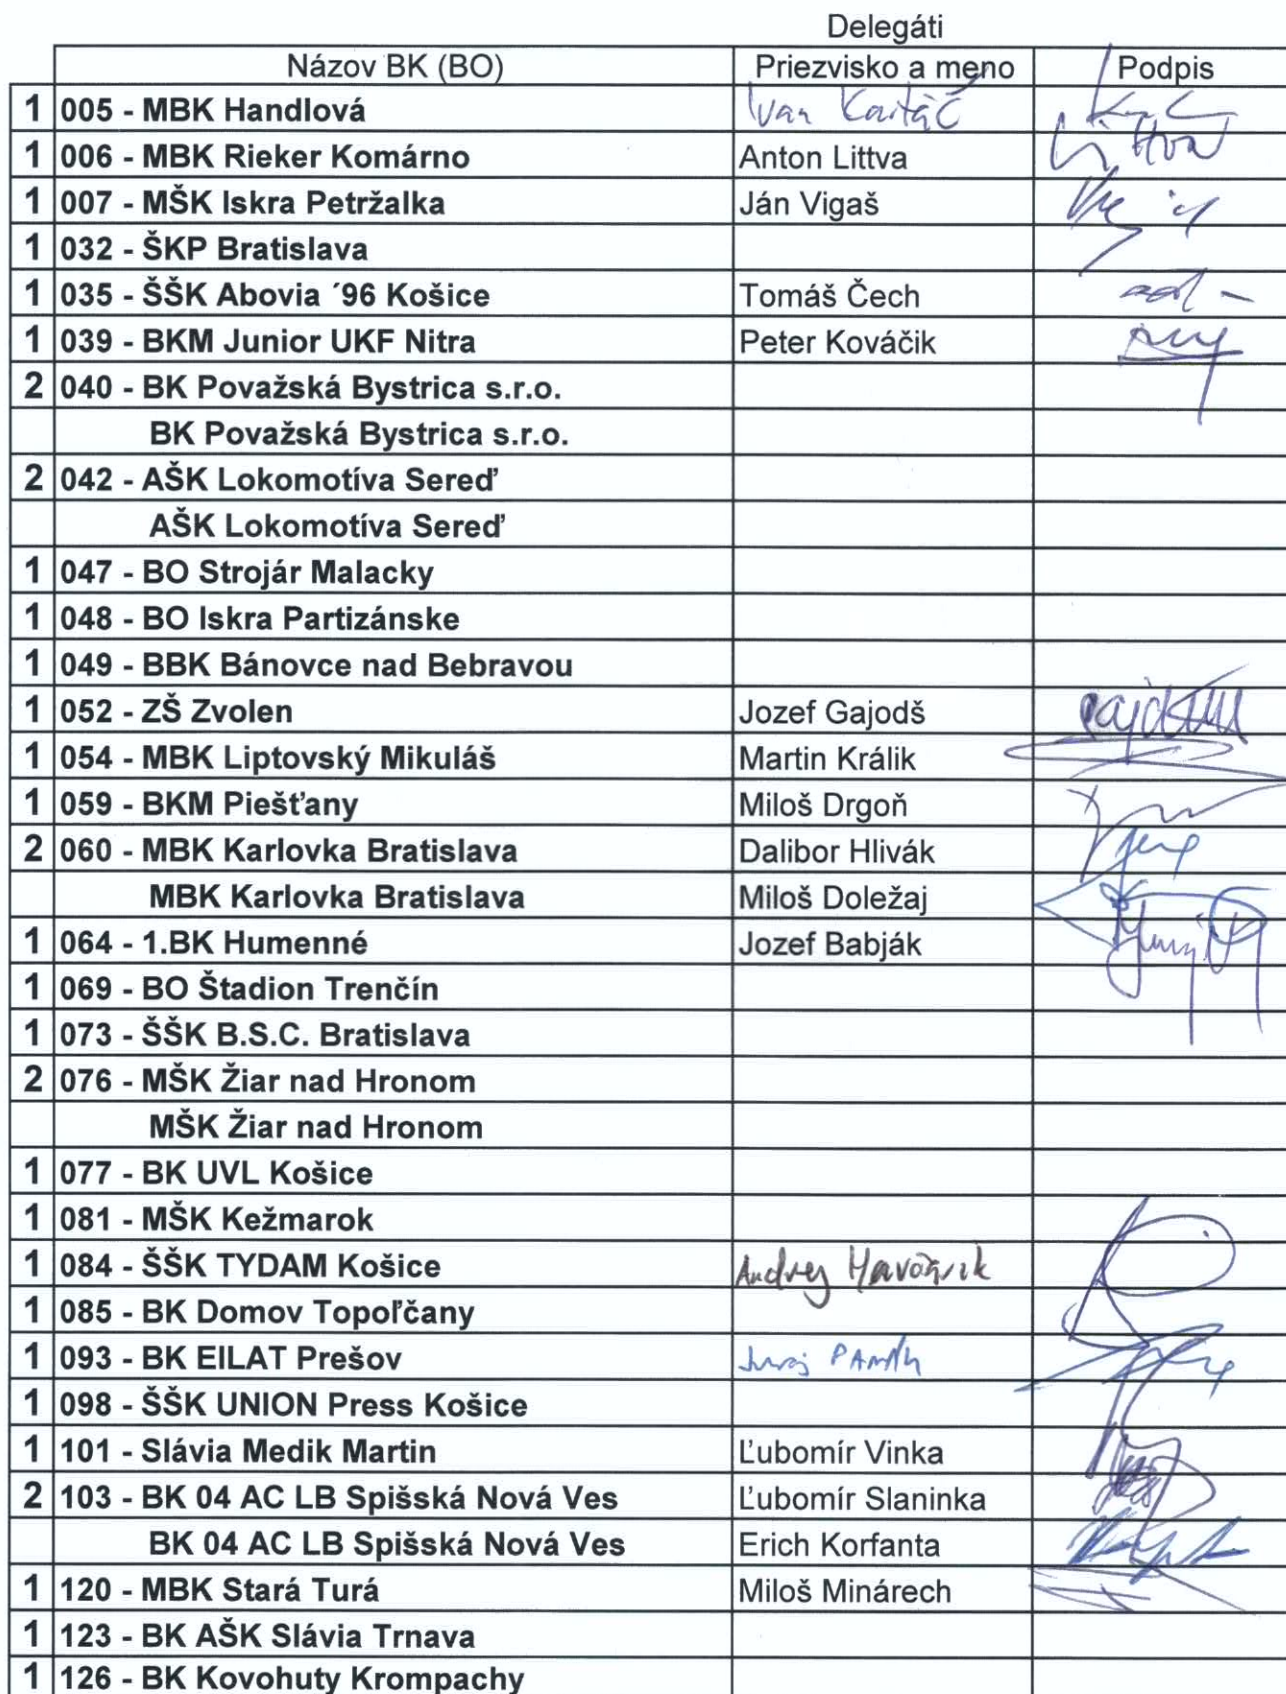 Delegáti
Názov BK (BO) Priezvisko a meno Podpis
1 005 - MBK Handlová Ivan
1 006 - MBK Rieker Komárno Anton Littva
1 007 - MŠK Iskra Petržalka Ján Vigaš
1 032 - ŠKP Bratislava
1 035 - ŠŠK Abovia ´96 Košice Tomáš Čech
1 039 - BKM Junior UKF Nitra Peter Kováčik
2 040 - BK Považská Bystrica s.r.o.
BK Považská Bystrica s.r.o.
2 042 - AŠK Lokomotíva Sereď
AŠK Lokomotíva Sereď
1 047 - BO Strojár Malacky
1 048 - BO Iskra Partizánske
1 049 - BBK Bánovce nad Bebravou
1 052 - ZŠ Zvolen Jozef Gajodš
1 054 - MBK Liptovský Mikuláš Martin Králik
1 059 - BKM Piešťany Miloš Drgoň
2 060 - MBK Karlovka Bratislava Dalibor Hlivák
MBK Karlovka Bratislava Miloš Doležaj
1 064 - 1.BK Humenné Jozef Babják
1 069 - BO Štadion Trenčín
1 073 - ŠŠK B.S.C. Bratislava
2 076 - MŠK Žiar nad Hronom
MŠK Žiar nad Hronom
1 077 - BK UVL Košice
1 081 - MŠK Kežmarok
1 084 - ŠŠK TYDAM Košice Andrej
1 085 - BK Domov Topoľčany
1 093 - BK EILAT Prešov Juraj
1 098 - ŠŠK UNION Press Košice
1 101 - Slávia Medik Martin Ľubomír Vinka
2 103 - BK 04 AC LB Spišská Nová Ves Ľubomír Slaninka
BK 04 AC LB Spišská Nová Ves Erich Korfanta
1 120 - MBK Stará Turá Miloš Minárech
1 123 - BK AŠK Slávia Trnava
1 126 - BK Kovohuty Krompachy